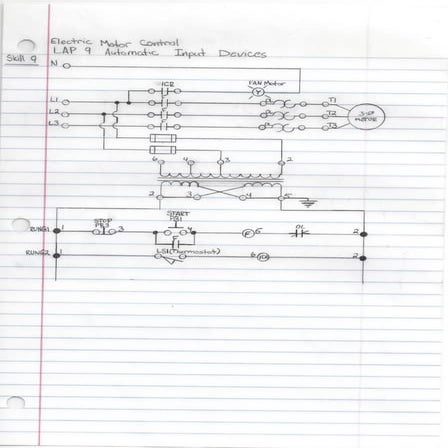 Electric Motor Control
Skill 9 LAP 9 Automatic Input Devices
N
1CR FAN Motor
L1 T1
L2 T2 3-Ø MOTOR
L3 T3
4 3 2
2 3 4 5
START
STOP PB1
RUNG1 1 PB3 3 4 F 5 OL 2
F
LS1(Thermostat)
RUNG2 2